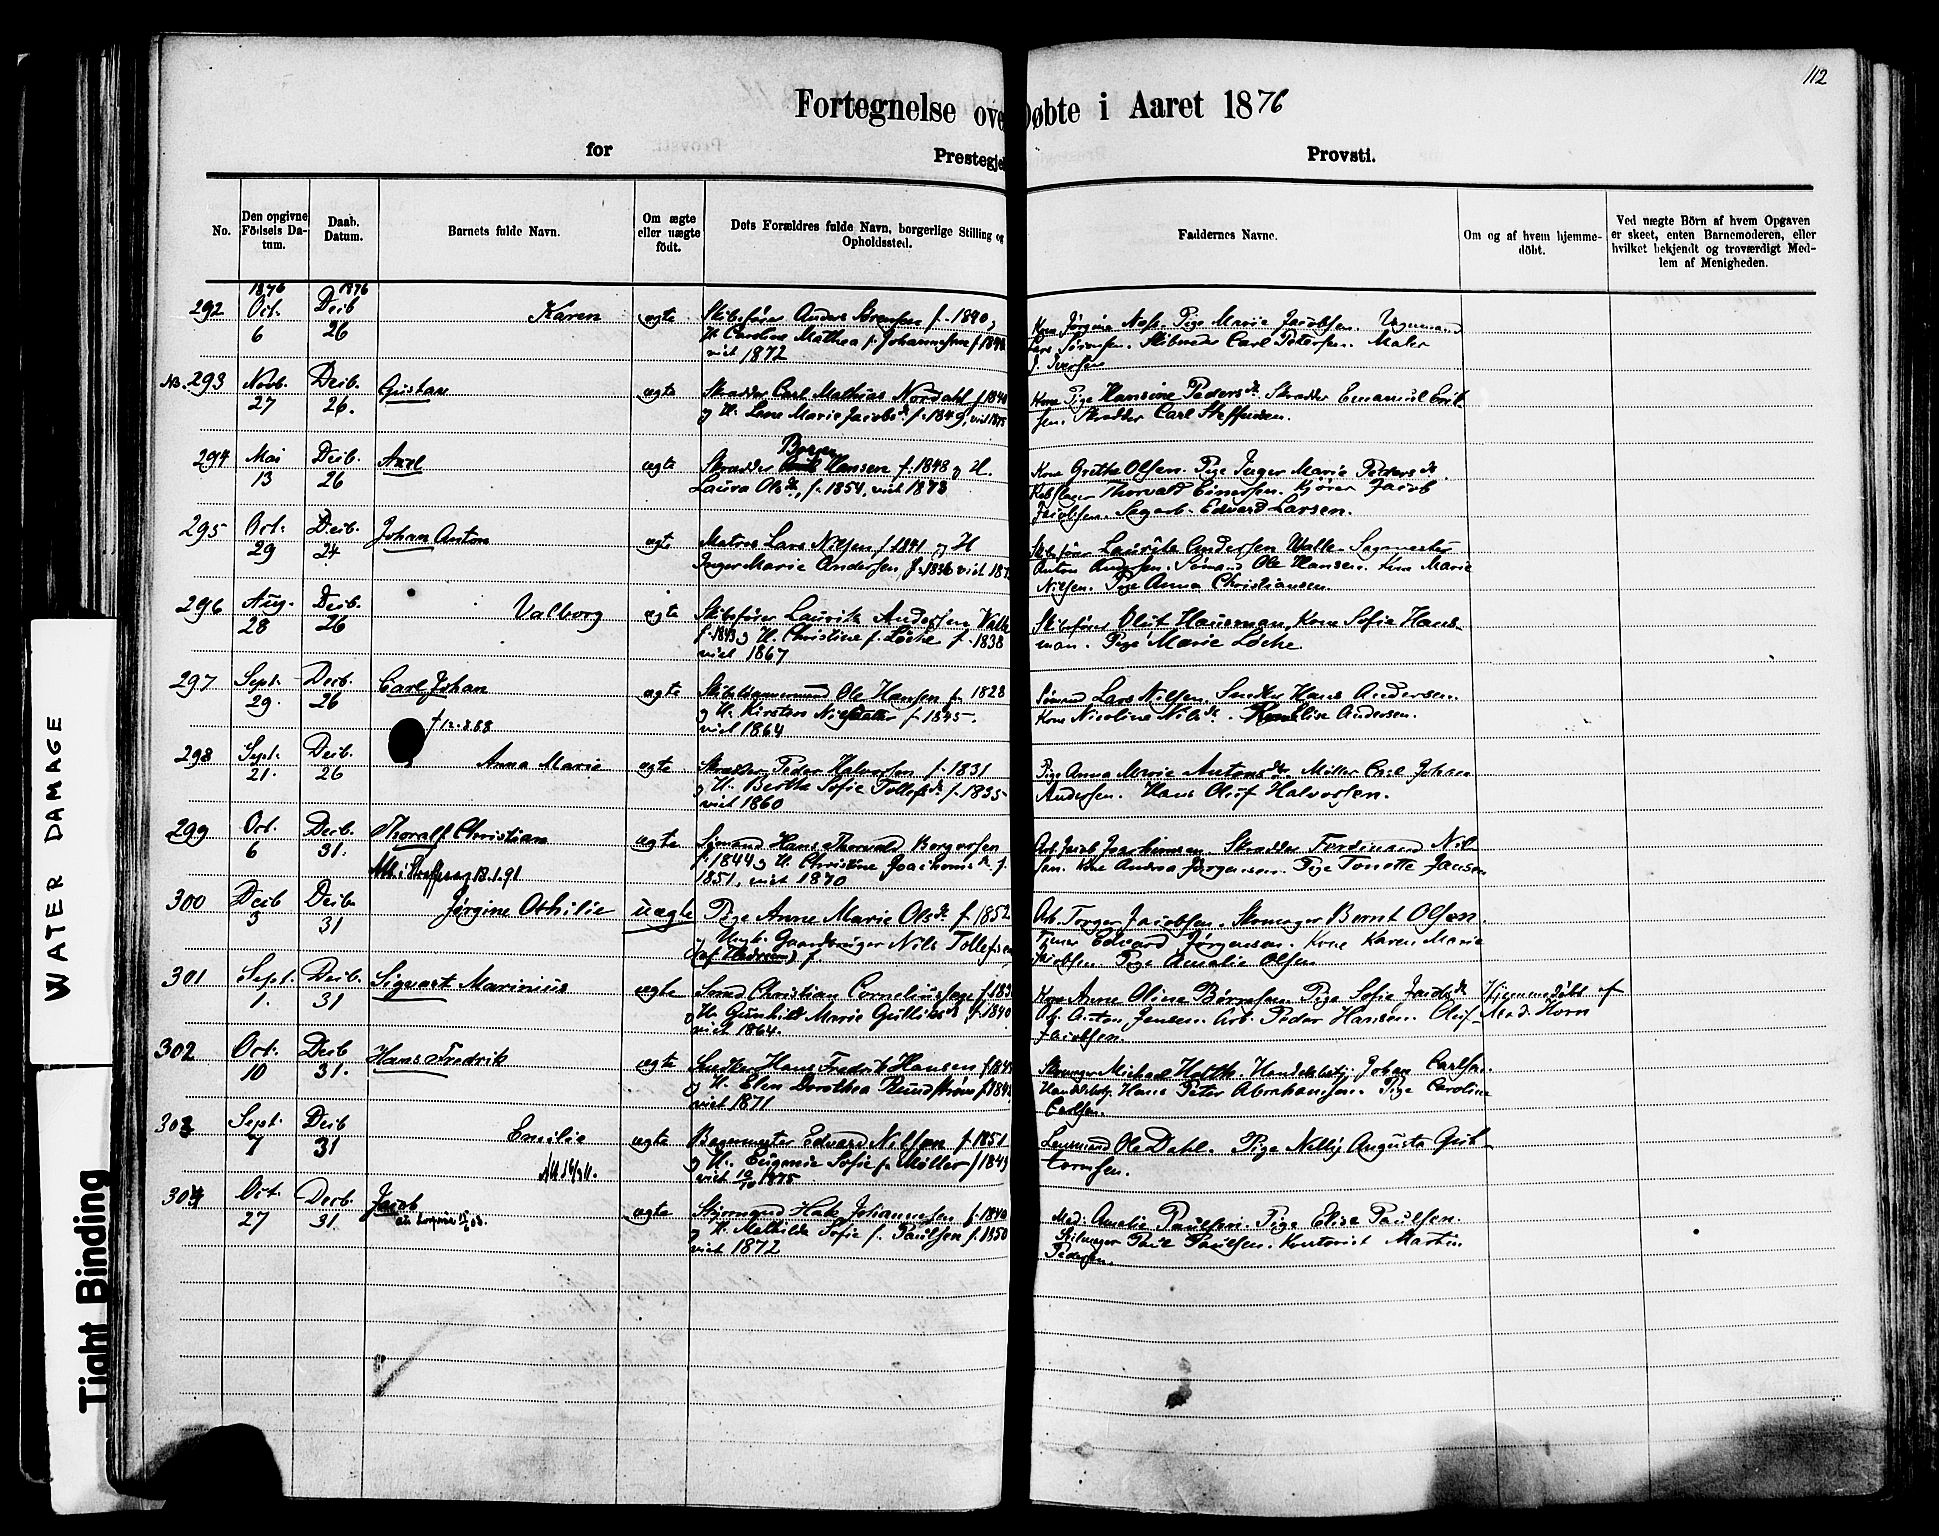 112
Fortegnelse ove Døbte i Aaret 1876
for Prestegje Provsti.
No.
Den opgivne Födsels Datum.
Daab. Datum.
Barnets fulde Navn.
Om ægte eller uægte födt.
Dets Forældres fulde Navn, borgerlige Stilling og Opholdssted.
Faddernes Navne.
Om og af hvem hjemmedöbt.
Ved uægte Börn af hvem Opgaven er skeet, enten Barnemoderen, eller hvilket bekjendt og troværdigt Medlem af Menigheden.
1876 1876
292 Oct. 6 Decb 26 Karen ægte
Skibsfører Anders Sørensen f. 1840,
H. Caroline Mathea f. Johannesen f. 184
viet 1872
Kone Jørgine Næss. Pige Marie Jacobsen.
Lars Sørensen. Carl Petersen. Maler
J. Iversen
NB. 293 Novb. 27 Decb. 26. Gustav ægte
Skrædder Carl Mathias Nordahl f. 1840
og H. Lene Marie Jacobsd. f. 1849, viet 1875
Kone Pige Hansine Pedersd. Skrædder Emanuel Erik-
sen. Skrædder Carl Steffensen.
294 Mai 13 Decb. 26 Axel ægte
Skrædder Hansen f. 1848 og H.
Laura Olsd., f. 1854, viet 1873
Kone Grethe Olsen. Pige Inger Marie Pedersd.
Thorvald Einersen. Kjører Jacob
Jacobsen. Sagarb. Edvard Larsen.
295 Oct. 29 Decb. 24 Johan Anton ægte
Matros Lars Nilsen f. 1841 og H
Inger Marie Andersen f. 1836 viet 18
Skibsfører Lauritz Andersen Walle. Sagmester
Anton Andersen. Sømand Ole Hansen. Kone Marie
Nielsen. Pige Anna Christiansen.
296 Aug. 28 Decb. 26 Valborg ægte
Skibsfører Lauritz Andersen Walle
f. 1843 og H. Christine f. Løche f. 1838
viet 1867
Skibsfører Oluf Hausman, Kone Sofie Haus-
man. Pige Marie Løche.
297 Sept. 29. Decb. 26 Carl Johan ægte
† 12.8.88
Skibstømmermand Ole Hansen f. 1828
og H. Kirsten Nielsdatter f. 1845.
viet 1864
Sømand Lars Nilsen. Snedker Hans Andersen.
Kone Nicoline Nilsd. Elise Andersen.
298 Sept. 21. Decb. 26 Anna Marie ægte
Skrædder Peder Halvorsen f. 1831
og H. Berthe Sofie Tollefsd. f. 1835
viet 1860
Pige Anna Marie Antonsd. Møller Carl Johan
Andersen. Hans Oluf Halvorsen.
299 Oct. 6 Decb. 31. Thoralf Christian ægte
18.1.91
Sømand Hans Thorvald Borgersen
f. 1844 og H. Christine Joachimsd. f.
1851, viet 1870
Arb. Jacob Joachimsen. Skrædder Ferdinand Nil-
sen. Kone Andrea Jørgensen. Pige Tonette Jansen
300 Decb 3 Decbr 31 Jørgine Othilie uægte
Pige Anne Marie Olsd. f. 1852
og Ungk. Gaardbruger Nils Tollefsen
(af Hedrum) f
Arb. Torger Jacobsen. Skomager Bernt Olsen.
Tjener Edvard Jørgensen. Kone Karen Marie
Jacobsen. Pige Amalie Olsen
301 Sept. 1. Decb. 31 Sigvart Marinius ægte
Sømd Christian Corneliussen f. 183
og H. Gunhild Marie Gulliksd. f. 1840
viet 1864.
Kone Anne Oline Børresen. Pige Sofie Jacobsd.
Arb. Anton Jensen. Arb. Peder Hansen. Oluf
Jacobsen.
Hjemmedöbt af
Mad. Horn
302 Oct. 10 Decb 31. Hans Fredrik ægte
Snedker Hans Fredrik Hansen f. 184
og H. Elen Dorothea Rundstrøm f. 184
viet 1871
Skomager Michael Holth. Handelsbetj. Johan Carlsen.
Handelsbetj. Hans Peter Abrahamsen. Pige Caroline
Carlsen.
303 Sept. 7 Decb 31 Emilie ægte
Bagermester Edvard Nilsen f. 1851
og H. Eugenie Sofie f. Møller f. 1849
viet 1875
Lensmand Ole Dahl. Pige Nelly Augusta Gut-
tormsen.
304 Oct. 27 Decb. 31. Jacob ægte
Styrmand Hak Johannesen f. 1840
og H. Mathilde Sofie f. Paulsen f. 1850
viet 1872
Mad. Amalie Paulsen. Pige Elise Paulsen.
Paul Paulsen. Kontorist Martin
Pedersen.
WATER DAMAGE
Tight Binding